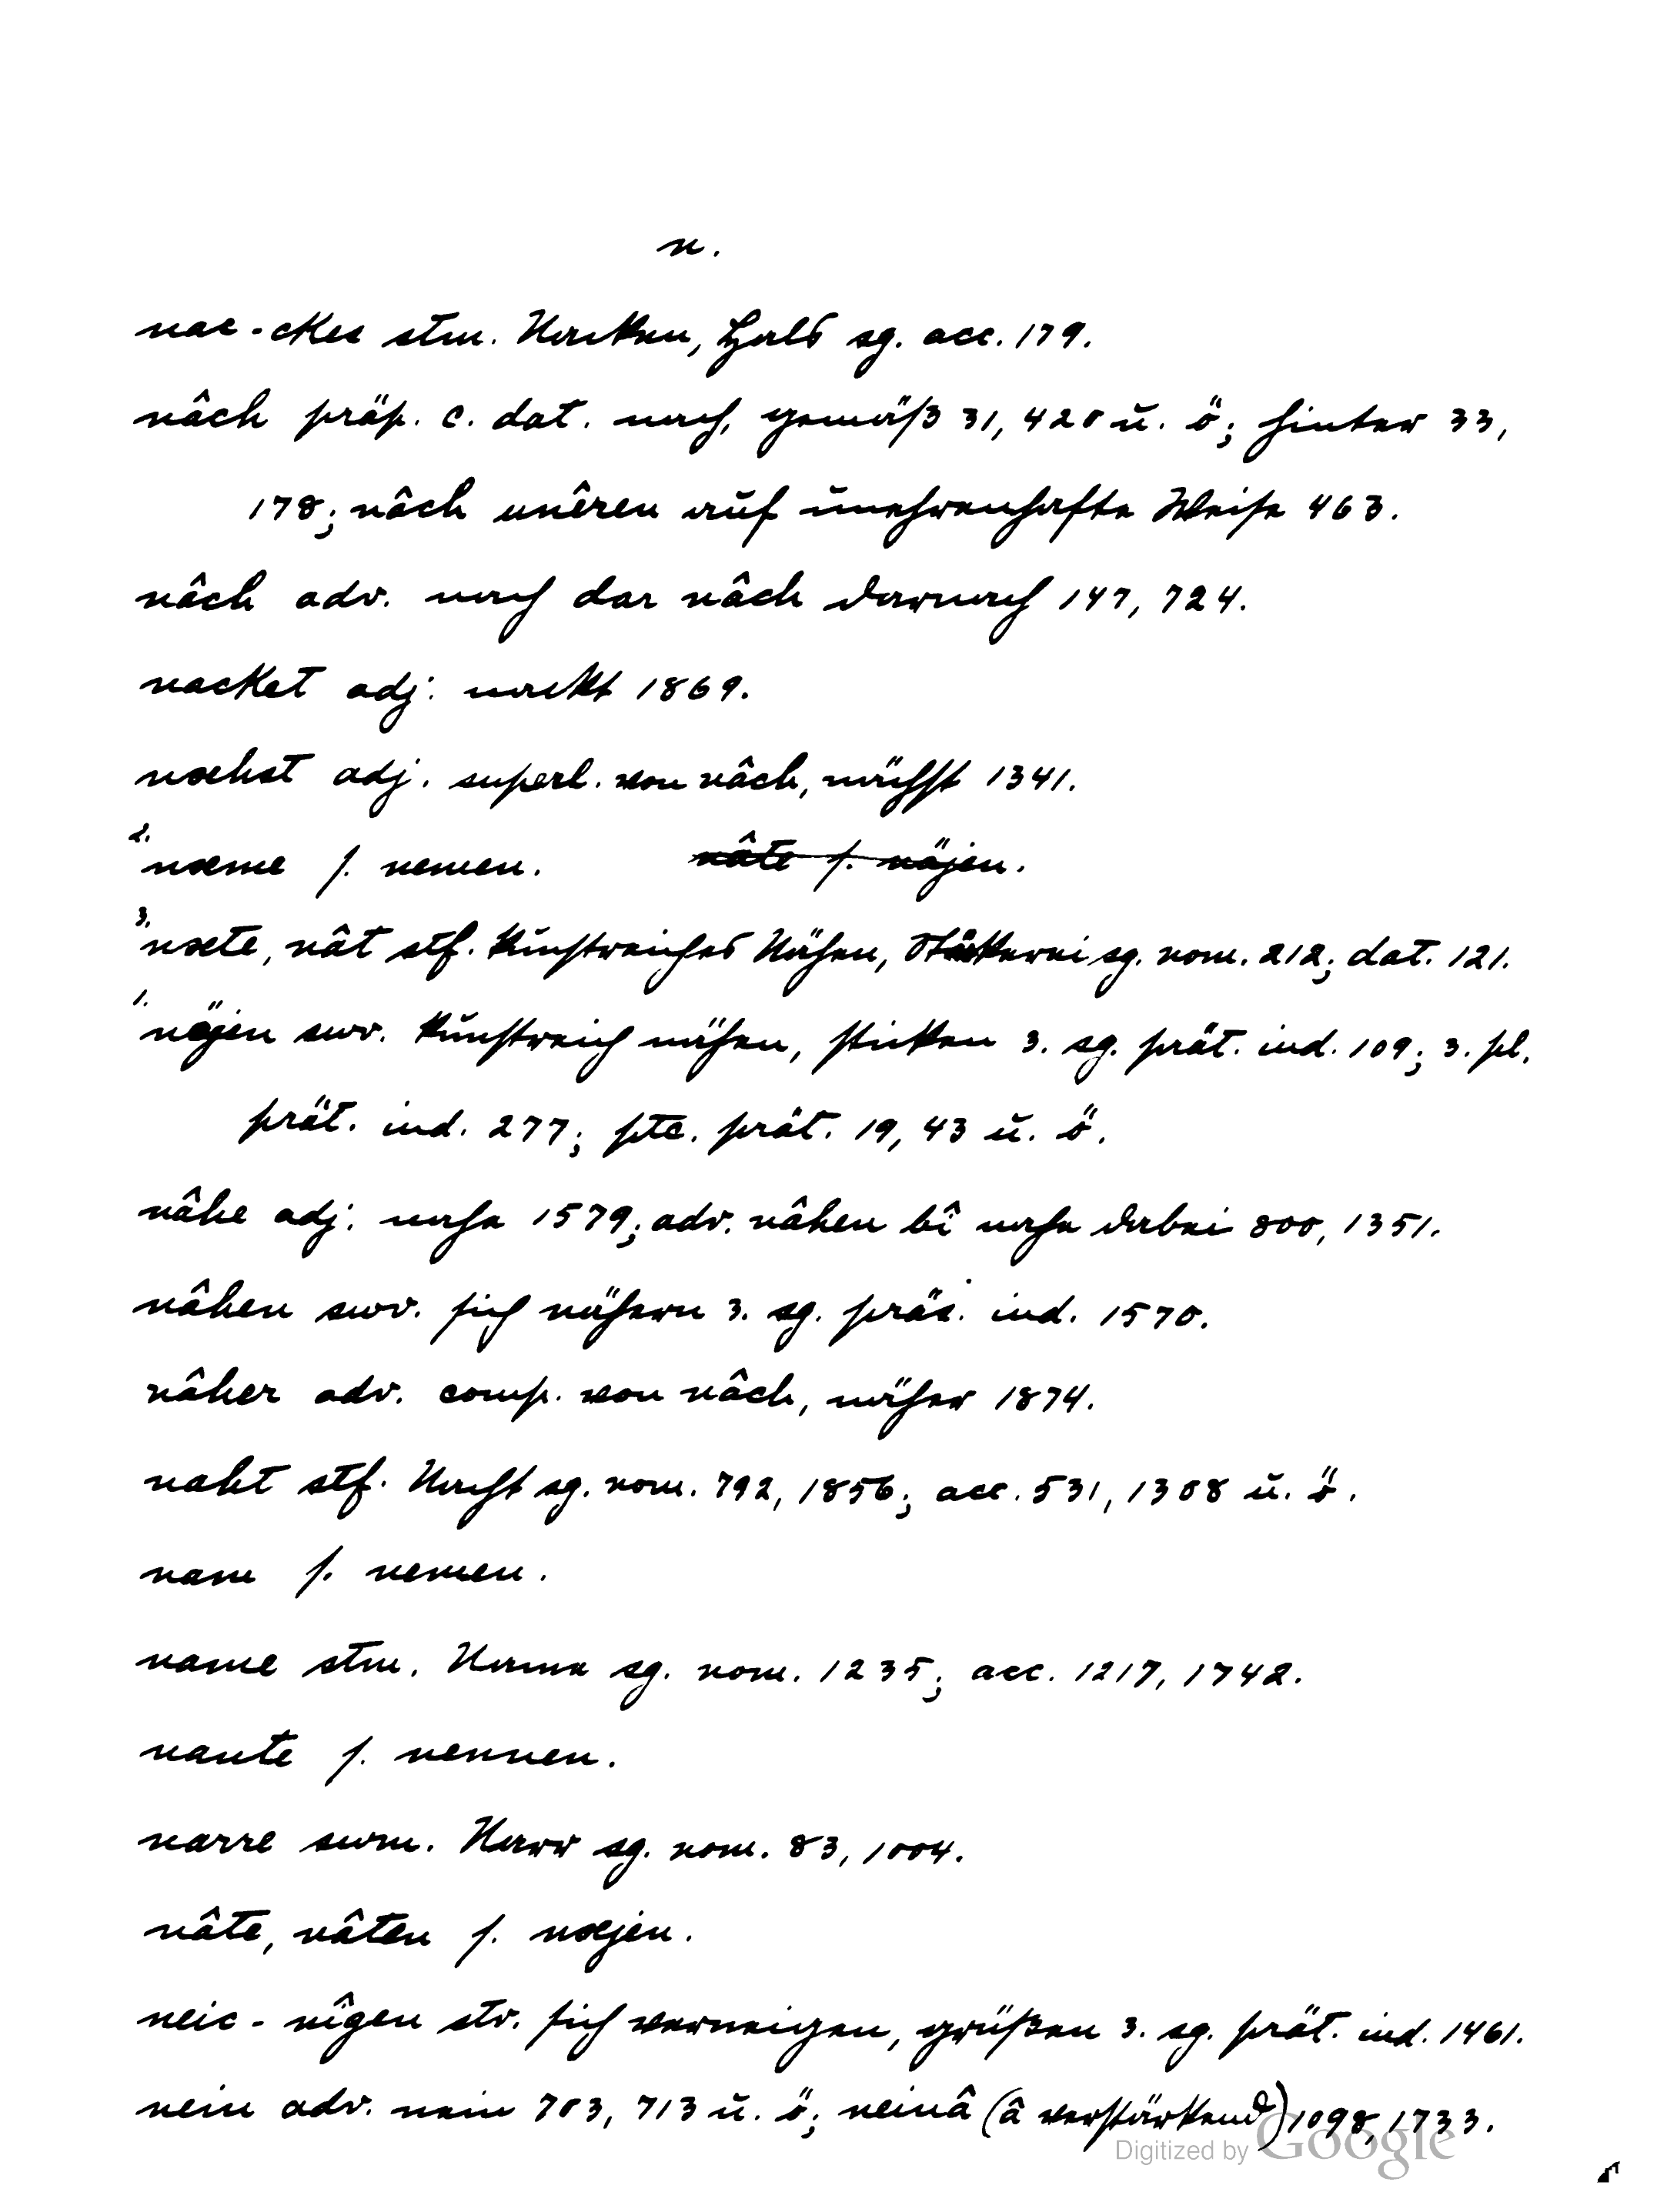 n.
nac-ckes stm. Nacken, Hals sg. acc. 179.
nâch präp. c. dat. nach, gemäß 31, 420 u. ö; hinter 33,
178; nâch unêren auf unehrenhafte Weise 463.
nâch adv. nach dar nâch darnach 147, 724.
nacket adj. nackt 1869.
næhst adj. superl. von nâch, nächst 1341.
2. næme s. nemen. nâte s. näjen.
3. næte, nât stf. kunstreiches Nähen, Stickerei sg. nom. 212; dat. 121.
1. näjen swv. kunstreich nähen, sticken 3. sg. prät. ind. 109; 3. pl.
prät. ind. 277; ptc. prät. 19, 43 u. ö.
nâhe adj. nahe 1579; adv. nâhen bî nahe dabei 800, 1351.
nâhen swv. sich nähern 3. sg. präs. ind. 1570.
nâher adv. comp. von nâch, näher 1874.
naht stf. Nacht sg. nom. 792, 1856; acc. 531, 1308 u. ö.
nam s. nemen.
name stm. Name sg. nom. 1235; acc. 1217, 1742.
nante s. nennen.
narre swm. Narr sg. nom. 83, 1004.
nâte, nâten s. næjen.
neic - nîgen stv. sich verneigen, grüßen 3. sg. prät. ind. 1461.
nein adv. nein 703, 713 u. ö; neinâ (â verstärkend) 1098, 1733.
Digitized by Google